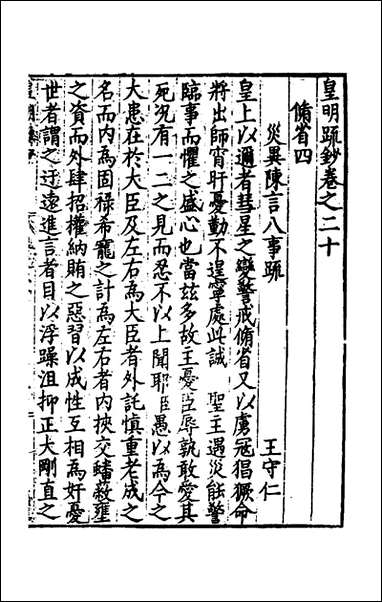 皇明疏鈔卷之二十
脩省四
災異陳言八事疏 王守仁
皇上以邇者彗星之變警戒脩省又以虜寇猖獗命
將出師宵旰憂勤不遑寧處此誠 聖主遇災能警
臨事而懼之盛心也當兹多故主憂臣辱孰敢愛其
死況有一二之見而忍不以上聞耶臣愚以為今之
大患在於大臣及左右為大臣者外託慎重老成之
名而内為固禄希寵之計為左右者内挾交蟠蔽壅
之資而外肆招權納賄之惡習以成性互相為奸憂
世者謂之迂遠進言者目以浮躁沮抑正大剛直之